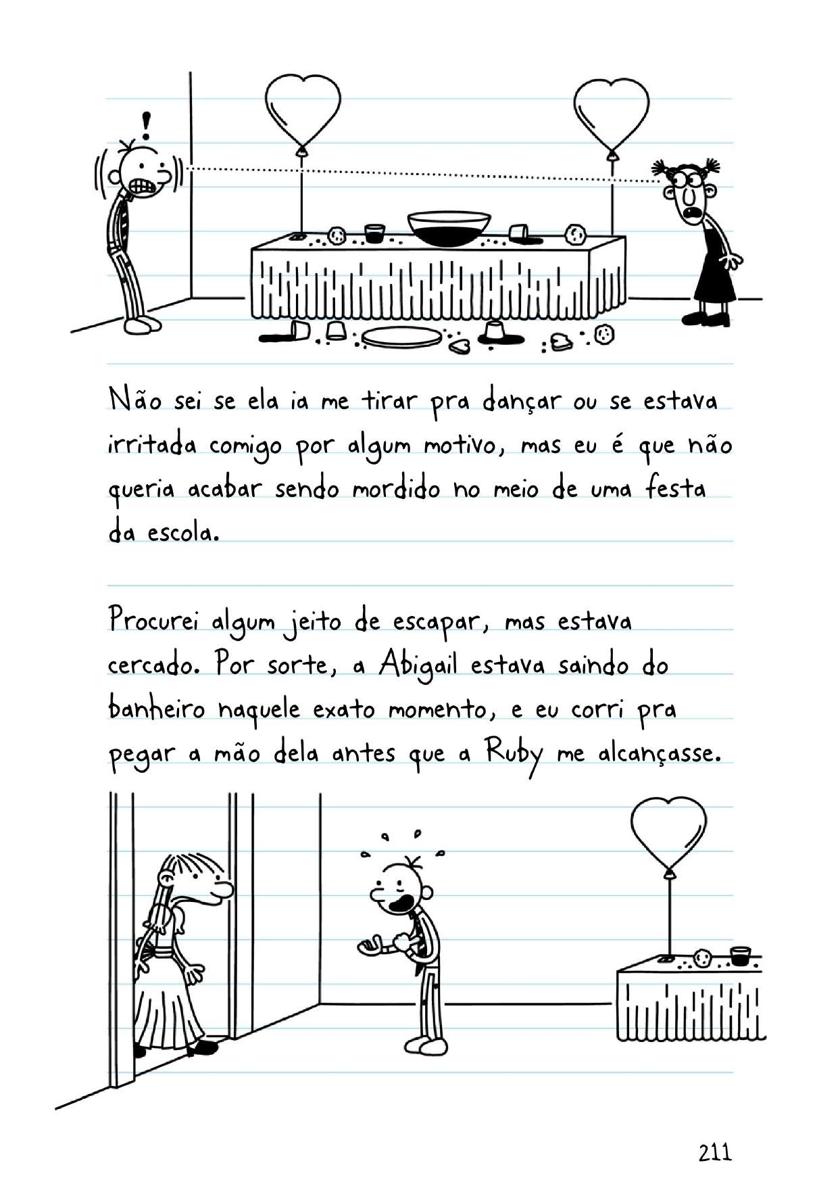 !
Não sei se ela ia me tirar pra dançar ou se estava
irritada comigo por algum motivo, mas eu é que não
queria acabar sendo mordido no meio de uma festa
da escola.
Procurei algum jeito de escapar, mas estava
cercado. Por sorte, a Abigail estava saindo do
banheiro naquele exato momento, e eu corri pra
pegar a mão dela antes que a Ruby me alcançasse.
211